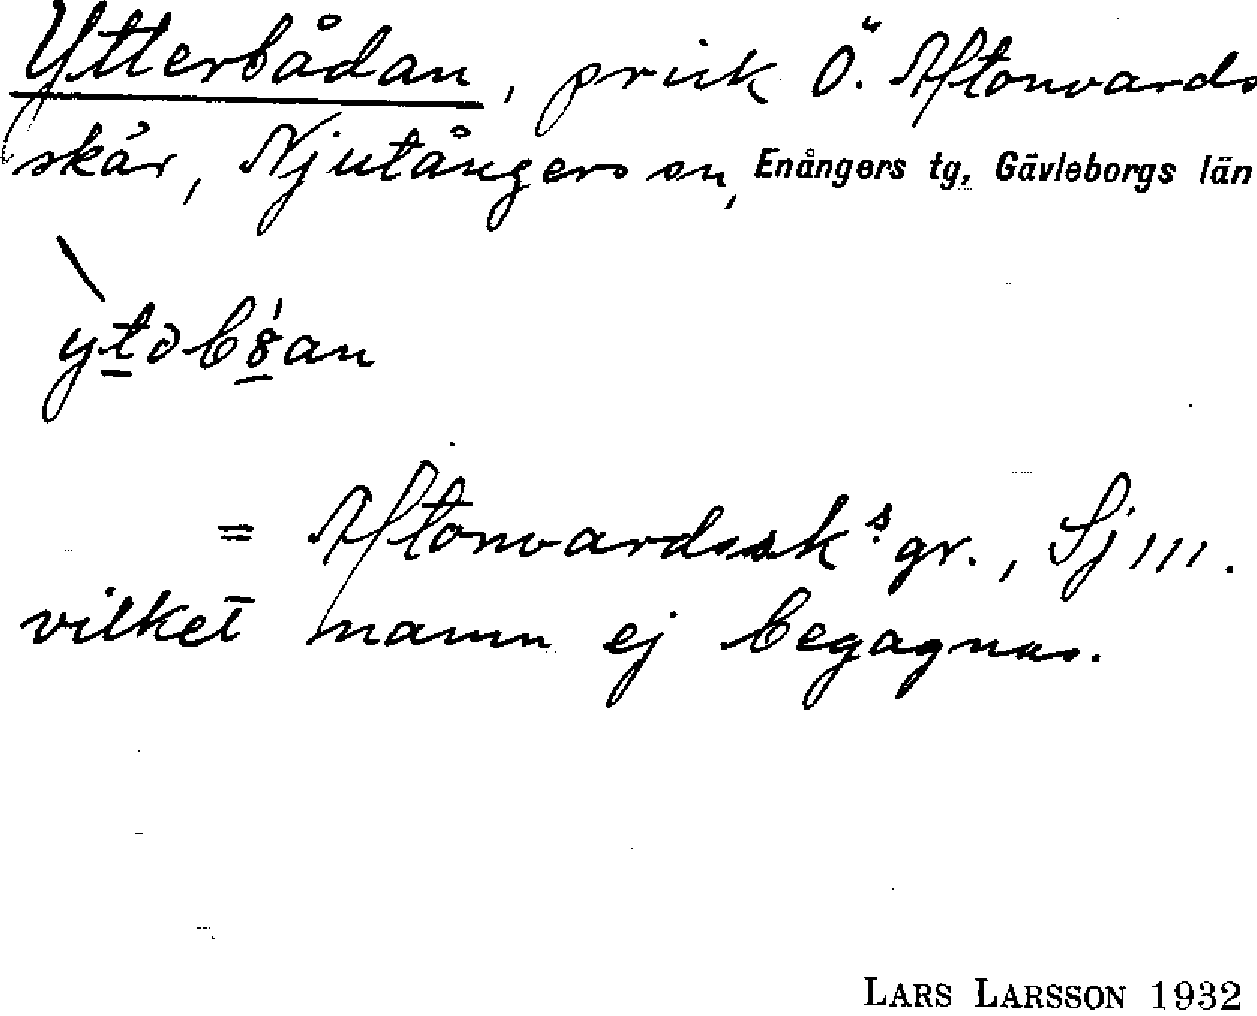 Ytterbådan, prick Ö. Aftonvards
skär, Njutångers sn, Enångers tg, Gävleborgs län
= Aftonvardssk:s gr., Sj 111.
vilket namn ej begagnas.
LARS LARSSON 1932